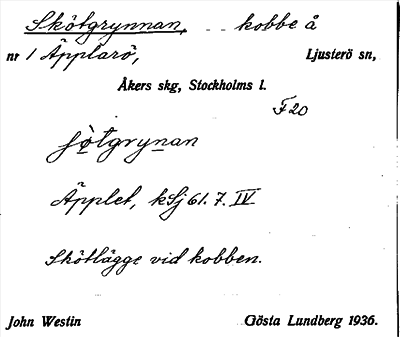 Skötgrynnan, kobbe å
nr 1 Äpplarö, Ljusterö sn,
Åkers skg, Stockholms l.
F 20
ʃö̀tgrynan
Äpplet, kSj 61. 7. IV
Skötlägge vid kobben.
John Westin Gösta Lundberg 1936.